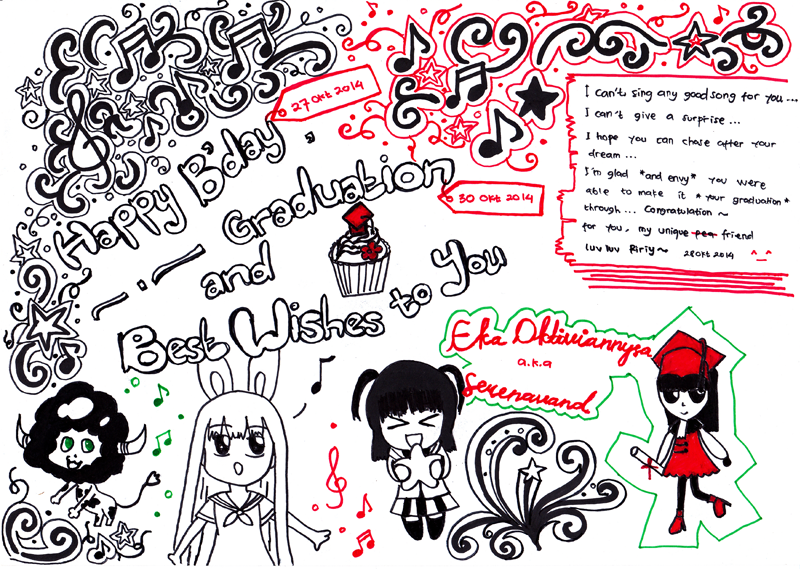 27 Okt 2014
Happy B'day,
Graduation
30 Okt 2014
and
Best Wishes to You
I can't sing any good song for you...
I can't give a surprise...
I hope you can chase after your
dream...
I'm glad *and envy* you were
able to make it *your graduation*
through... Congratulation ~
for you, my unique friend
luv luv Ririy ~ 28 Okt 2014 ^_^
Eka Oktiviannysa
a.k.a
Serenavand